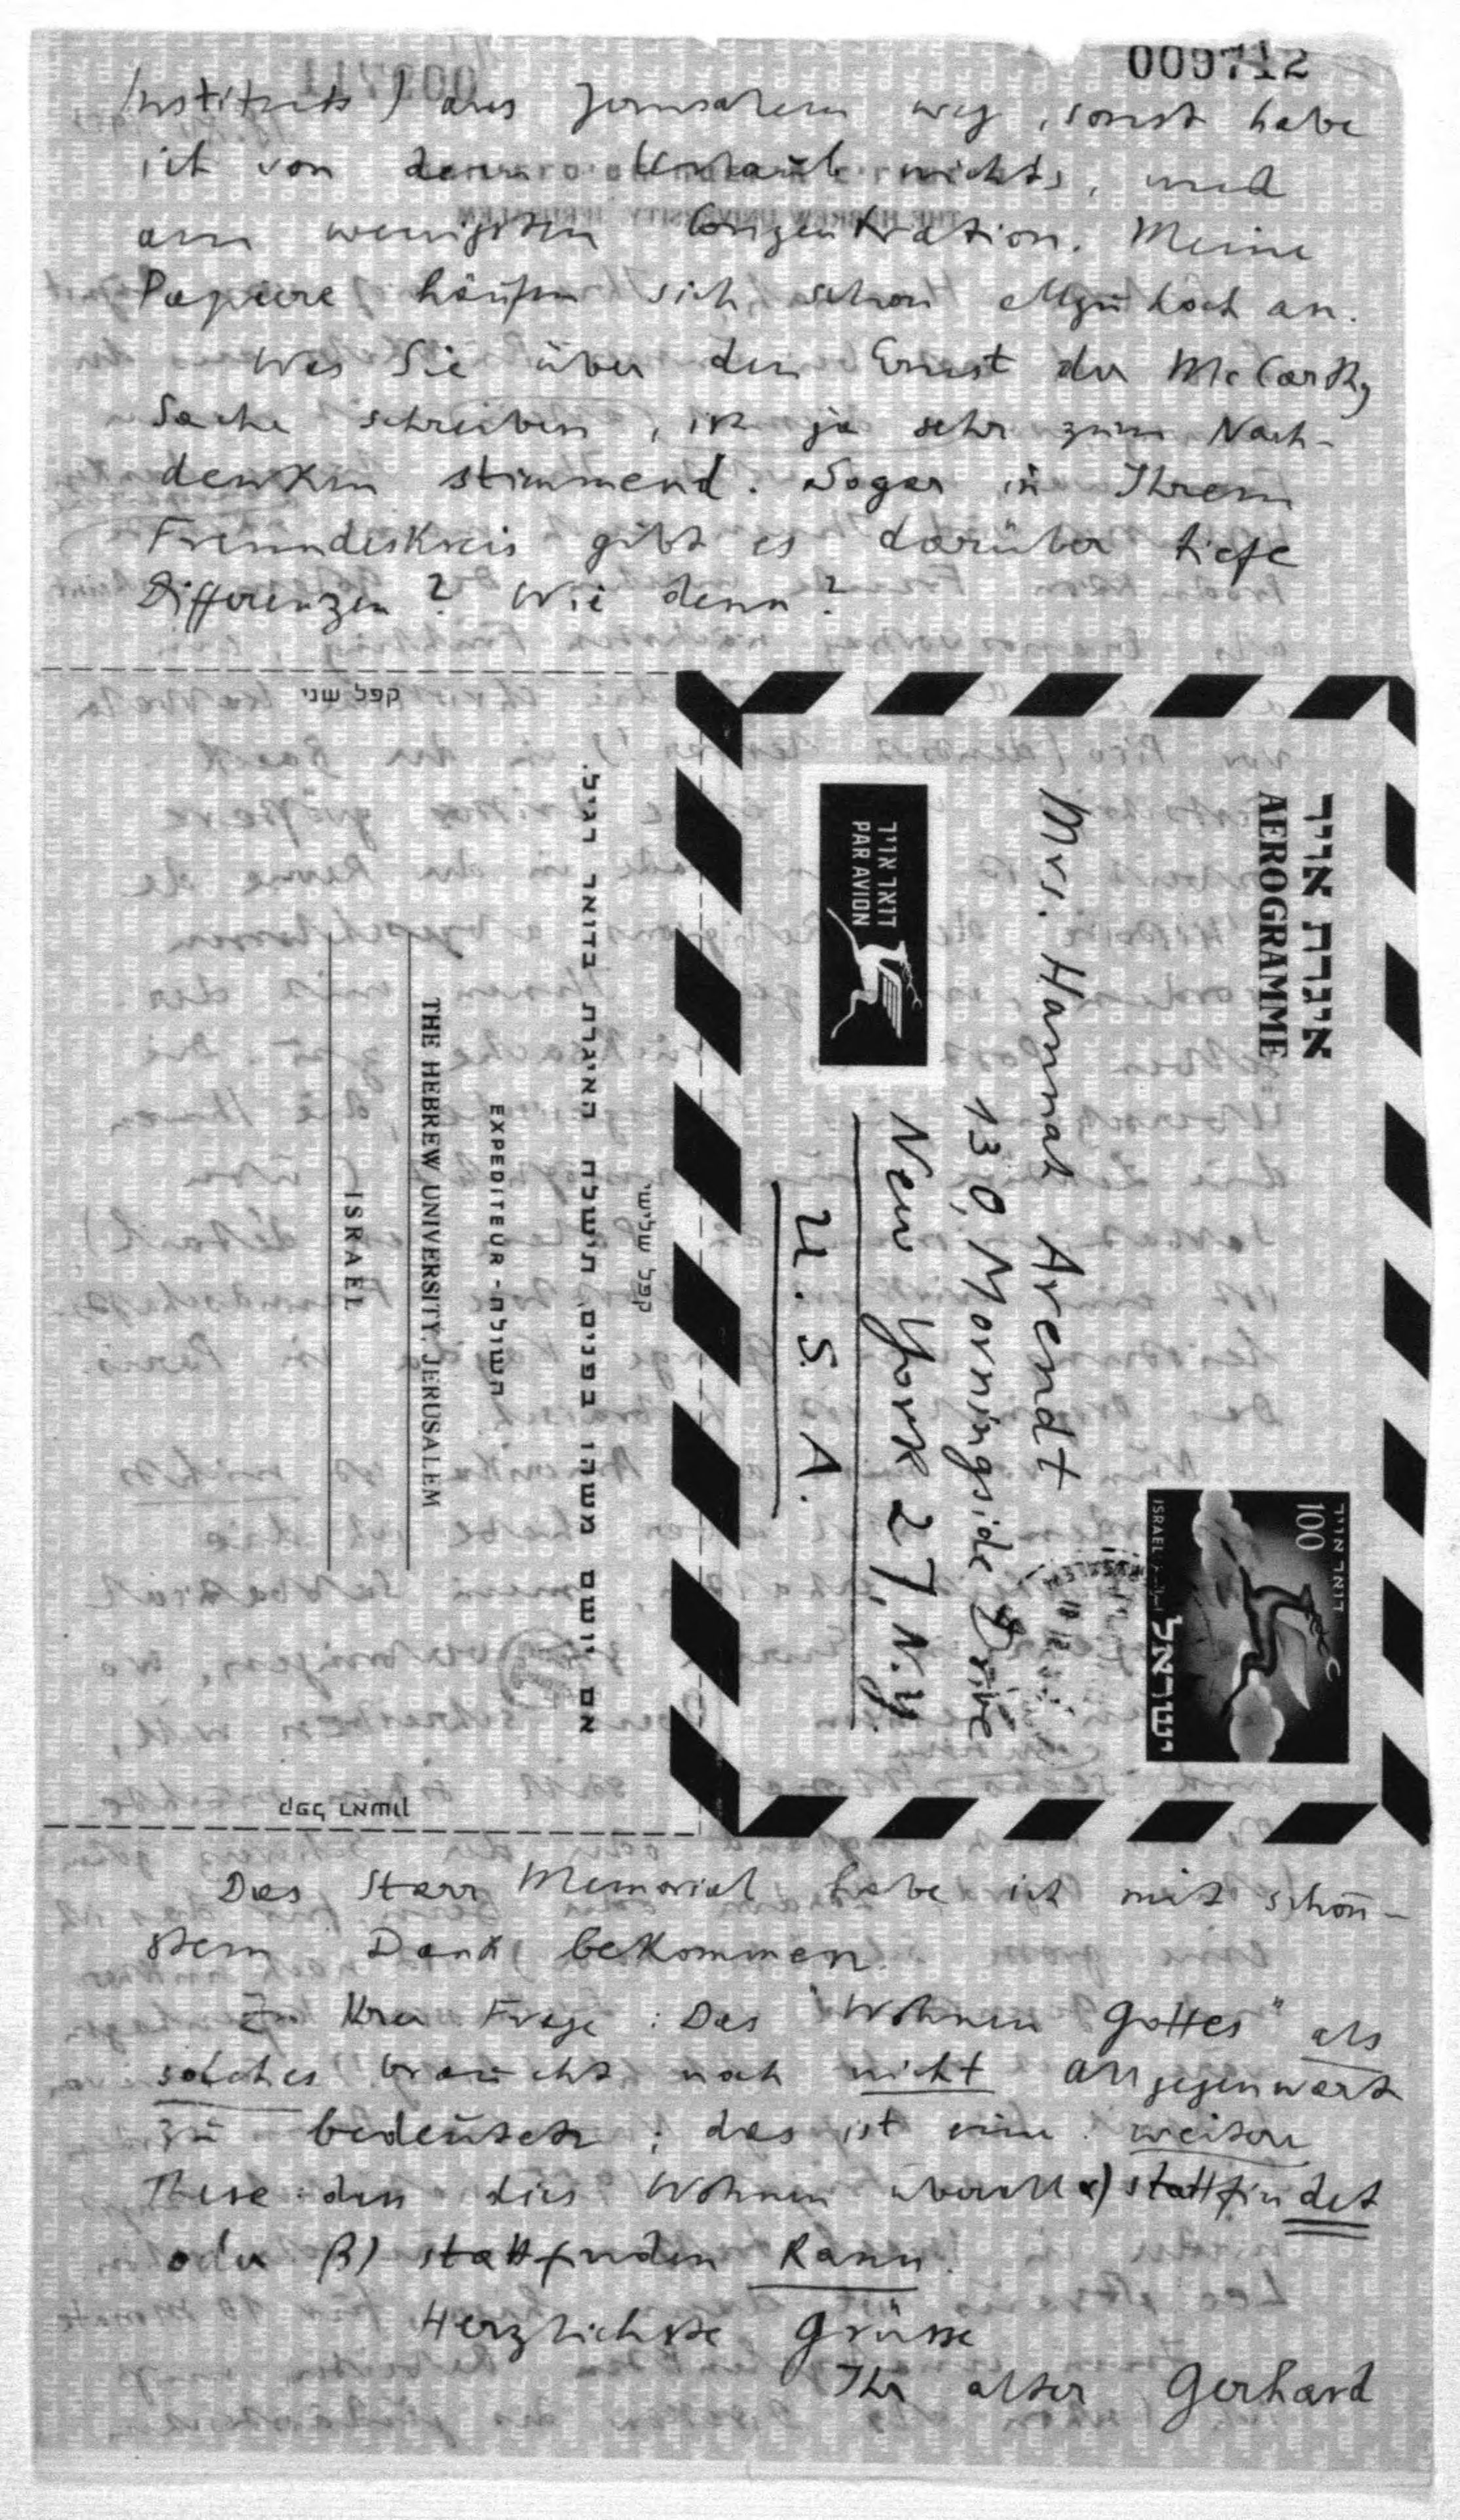 009712
Instituts) aus Jerusalem weg, sonst habe
ich von dem Urlaub nichts, und
am wenigsten Conzentration. Meine
Papiere häufen sich schon allzu hoch an.
Was Sie über den Ernst der McCarthy
Sache schreiben, ist ja sehr zum Nach-
denken stimmend. Sogar in Ihrem
Freundeskreis gibt es darüber tiefe
Differenzen? Wie denn?
קפל שני
אגרת אויר
AEROGRAMME
דואר אויר
PAR AVION
Mrs. Hannah Arendt
130, Morningside Drive
New York 27, N.Y.
U. S. A.
100
דואר אויר
ISRAEL
ישראל
קפל שלישי
אם יושם משהו בפנים, תישלח האיגרת בדואר רגיל.
EXPEDITEUR - השולח
THE HEBREW UNIVERSITY, JERUSALEM
ISRAEL
קפל ראשון
Das Starr Memorial habe ich mit schön-
stem Dank bekommen.
Zu Ihrer Frage: Das "Wohnen Gottes" als
solches braucht noch nicht Allgegenwart
zu bedeuten; das ist eine weitere
These: dass dies Wohnen überall α) stattfindet
oder β) stattfinden kann.
Herzlichste Grüsse
Ihr alter Gerhard